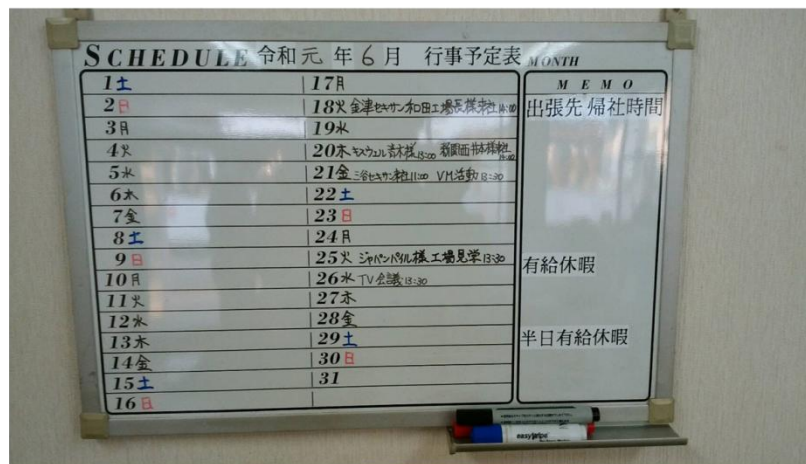 SCHEDULE 令和元年6月 行事予定表 MONTH
1土
2日
3月
4火
5水
6木
7金
8土
9日
10月
11火
12水
13木
14金
15土
16日
17月
18火 金津セキサン和田工場長様来社 14:00
19水
20木 キスウェル青木様 13:00 様来社
21金 三谷セキサン来社11:00 VM活動 13:30
22土
23日
24月
25火 ジャパンパイル様工場見学 13:30
26水 TV会議 13:30
27木
28金
29土
30日
31
MEMO
出張先 帰社時間
有給休暇
半日有給休暇
easy wipe